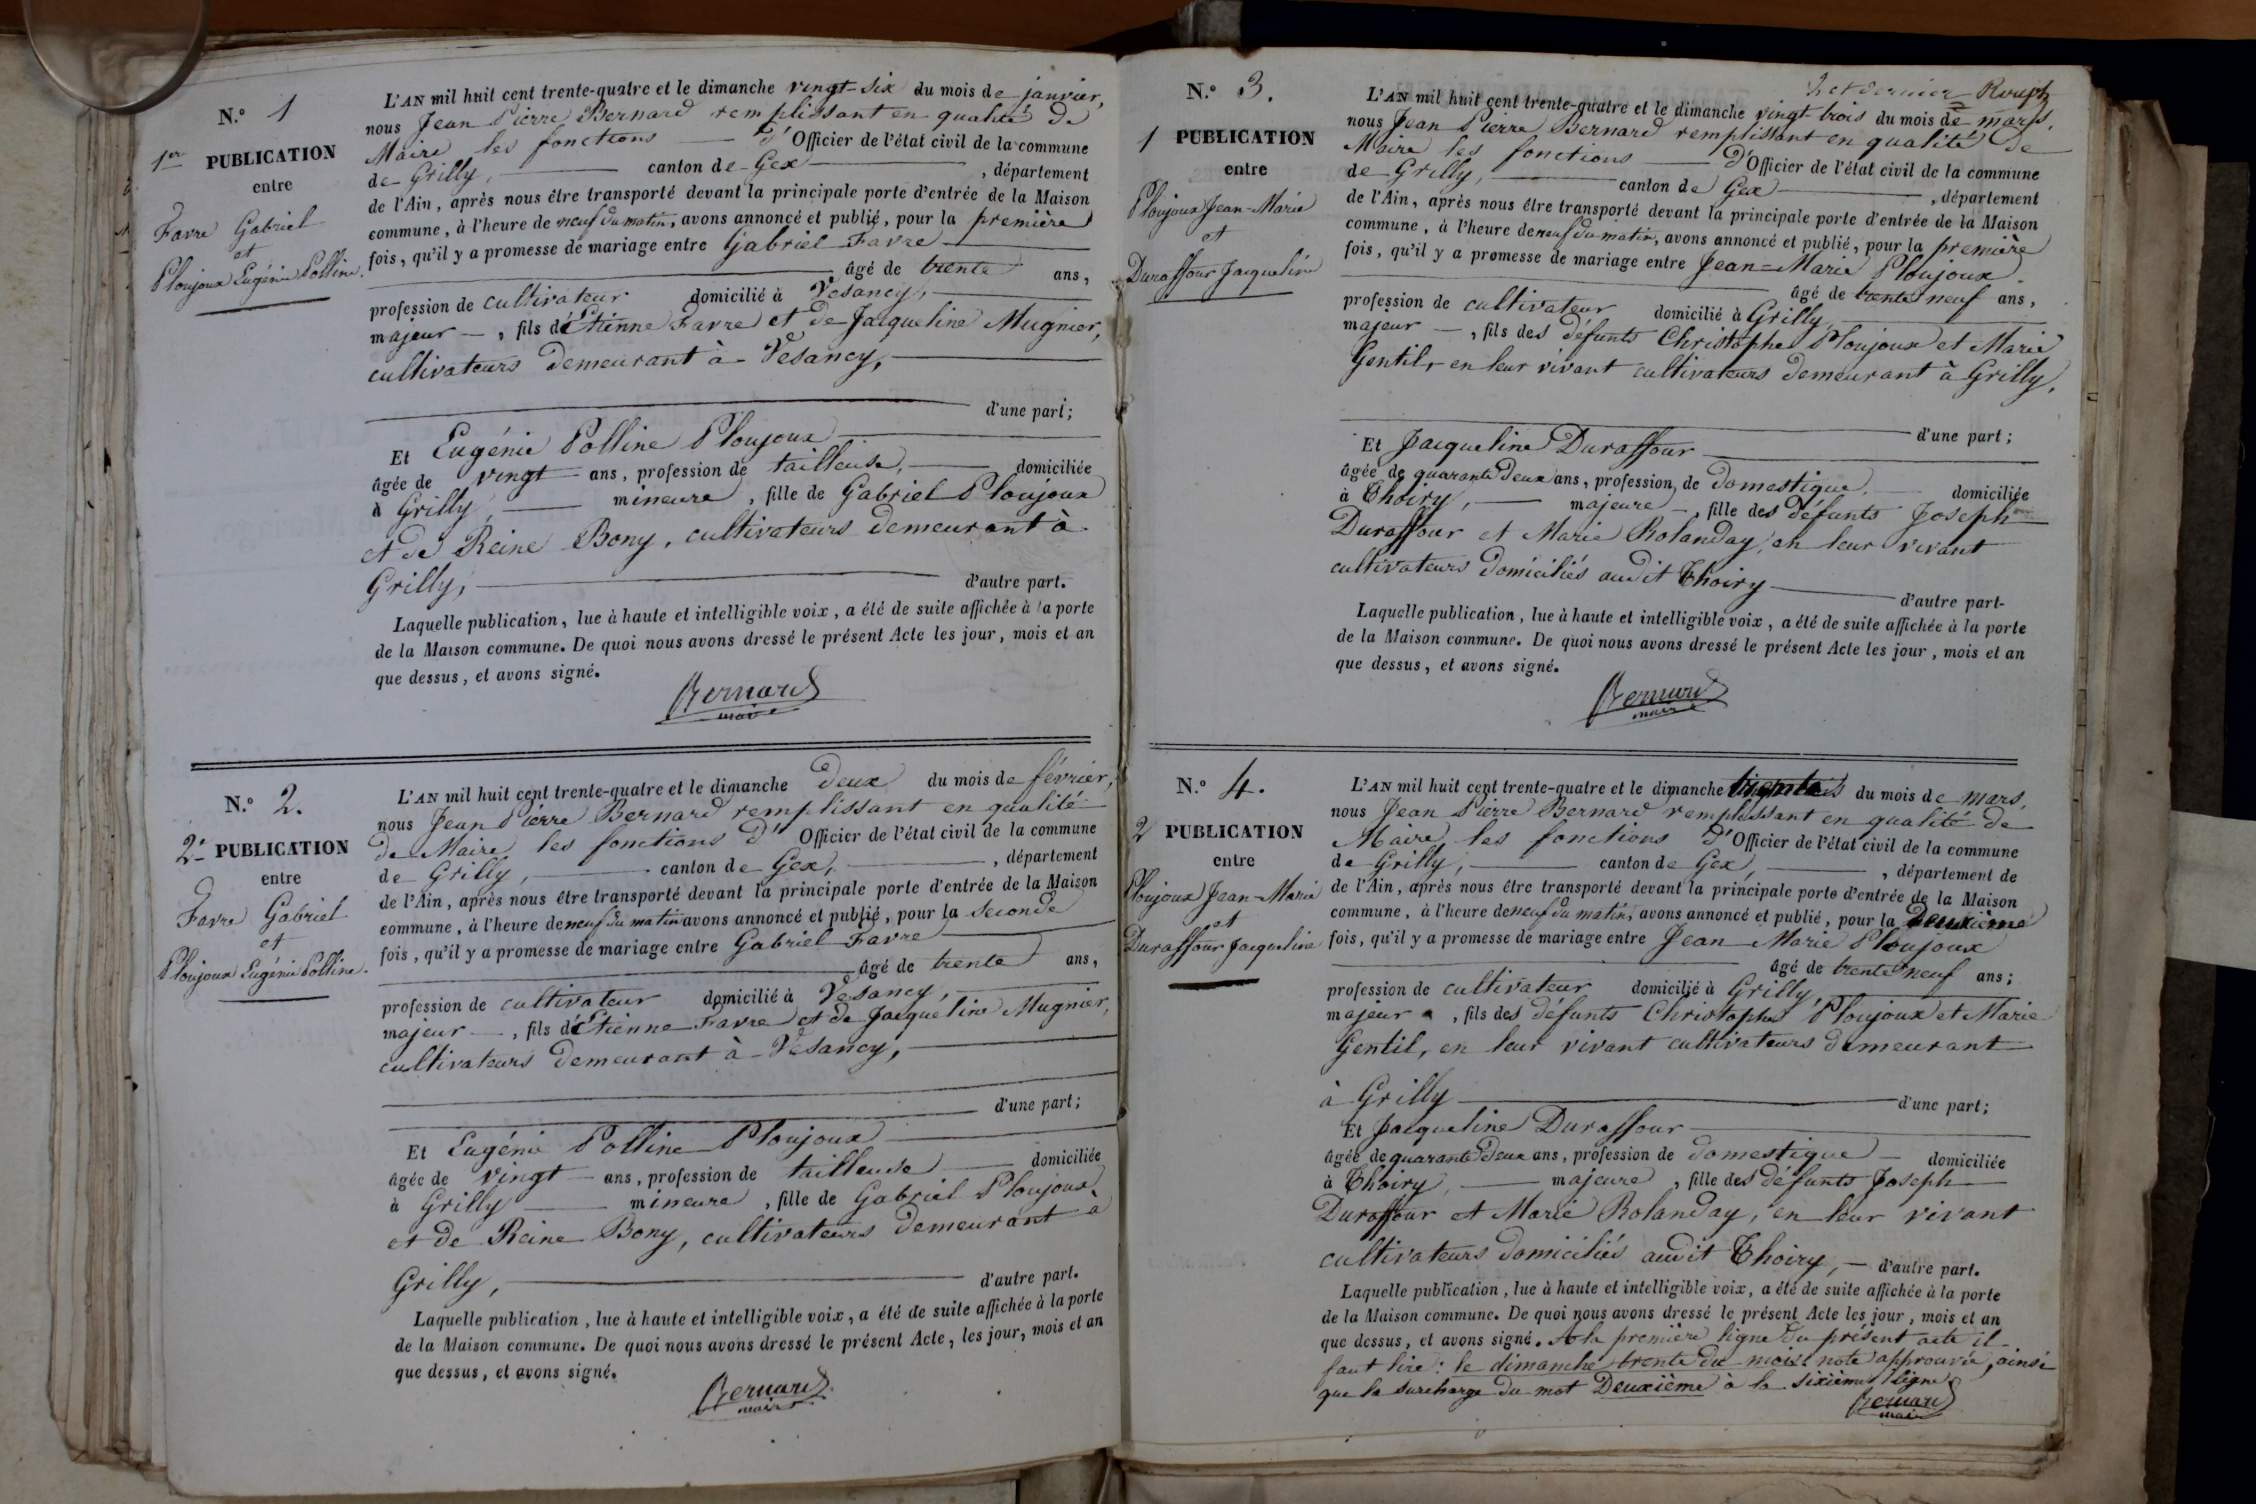 N.° 1
1ere PUBLICATION
entre
Favre Gabriel
et
Ploujoux Eugénie Polline.
L'AN mil huit cent trente-quatre et le dimanche vingt-six du mois de janvier,
nous Jean Pierre Bernard remplissant en qualité de
Maire les fonctions d'Officier de l'état civil de la commune
de Grilly, canton de Gex, département
de l'Ain, après nous être transporté devant la principale porte d'entrée de la Maison
commune, à l'heure de neuf du matin, avons annoncé et publié, pour la première
fois, qu'il y a promesse de mariage entre Gabriel Favre
âgé de trente ans,
profession de cultivateur domicilié à Vesancy,
majeur, fils d'Etienne Favre et de Jacqueline Mugnier,
cultivateurs demeurant à Vesancy,
d'une part;
Et Eugénie Polline Ploujoux
âgée de vingt ans, profession de tailleuse, domiciliée
à Grilly, mineure, fille de Gabriel Ploujoux
et de Reine Bony, cultivateurs demeurant à
Grilly, d'autre part.
Laquelle publication, lue à haute et intelligible voix, a été de suite affichée à la porte
de la Maison commune. De quoi nous avons dressé le présent Acte les jour, mois et an
que dessus, et avons signé.
Bernard
maire
N.° 2.
2e PUBLICATION
entre
Favre Gabriel
et
Ploujoux Eugénie Polline.
L'AN mil huit cent trente-quatre et le dimanche deux du mois de février,
nous Jean Pierre Bernard remplissant en qualité
de Maire les fonctions d'Officier de l'état civil de la commune
de Grilly, canton de Gex, département
de l'Ain, après nous être transporté devant la principale porte d'entrée de la Maison
commune, à l'heure de neuf du matin avons annoncé et publié, pour la seconde
fois, qu'il y a promesse de mariage entre Gabriel Favre
âgé de trente ans,
profession de cultivateur domicilié à Vesancy,
majeur, fils d'Etienne Favre et de Jacqueline Mugnier,
cultivateurs demeurant à Vesancy,
d'une part;
Et Eugénie Polline Ploujoux
âgée de vingt ans, profession de tailleuse domiciliée
à Grilly mineure, fille de Gabriel Ploujoux
et de Reine Bony, cultivateurs demeurant à
Grilly, d'autre part.
Laquelle publication, lue à haute et intelligible voix, a été de suite affichée à la porte
de la Maison commune. De quoi nous avons dressé le présent Acte, les jour, mois et an
que dessus, et avons signé.
Bernard
maire
et dernier
N.° 3.
1 PUBLICATION
entre
Ploujoux Jean-Marie
et
Duraffour Jacqueline
L'AN mil huit cent trente-quatre et le dimanche vingt trois du mois de mars,
nous Jean Pierre Bernard remplissant en qualité de
Maire les fonctions d'Officier de l'état civil de la commune
de Grilly, canton de Gex, département
de l'Ain, après nous être transporté devant la principale porte d'entrée de la Maison
commune, à l'heure de neuf du matin, avons annoncé et publié, pour la première
fois, qu'il y a promesse de mariage entre Jean-Marie Ploujoux
âgé de trente neuf ans,
profession de cultivateur domicilié à Grilly,
majeur, fils des défunts Christophe Ploujoux et Marie
Gentil, en leur vivant cultivateurs demeurant à Grilly,
d'une part;
Et Jacqueline Duraffour
âgée de quarante deux ans, profession de domestique, domiciliée
à Thoiry, majeure, fille des défunts Joseph
Duraffour et Marie Rolanday, en leur vivant
cultivateurs domiciliés audit Thoiry
d'autre part-
Laquelle publication, lue à haute et intelligible voix, a été de suite affichée à la porte
de la Maison commune. De quoi nous avons dressé le présent Acte les jour, mois et an
que dessus, et avons signé.
Bernard
maire
N.° 4.
2 PUBLICATION
entre
Ploujoux Jean-Marie
et
Duraffour Jacqueline
L'AN mil huit cent trente-quatre et le dimanche du mois de mars,
nous Jean Pierre Bernard remplissant en qualité de
Maire les fonctions d'Officier de l'état civil de la commune
de Grilly, canton de Gex, département de
de l'Ain, après nous être transporté devant la principale porte d'entrée de la Maison
commune, à l'heure de neuf du matin, avons annoncé et publié, pour la Deuxième
fois, qu'il y a promesse de mariage entre Jean Marie Ploujoux
âgé de trente neuf ans;
profession de cultivateur domicilié à Grilly,
majeur, fils des défunts Christophe Ploujoux et Marie
Gentil, en leur vivant cultivateurs demeurant
à Grilly d'une part;
Et Jacqueline Duraffour
âgée de quarante deux ans, profession de domestique domiciliée
à Thoiry, majeure, fille des défunts Joseph
Duraffour et Marie Rolanday, en leur vivant
cultivateurs domiciliés audit Thoiry, d'autre part.
Laquelle publication, lue à haute et intelligible voix, a été de suite affichée à la porte
de la Maison commune. De quoi nous avons dressé le présent Acte les jour, mois et an
que dessus, et avons signé. A la première ligne du présent acte il
faut lire: le dimanche trente du mois note approuvée, ainsi
que la surcharge du mot Deuxième à la sixième ligne
Bernard
maire